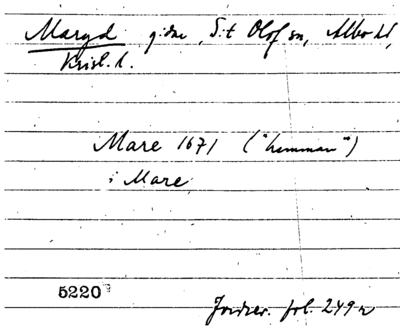 Maryd gårn, S:t Olof sn, Albo hd,
Krist. l.
Mare 1671 ("hemman")
i Mare
5220
Jordrev. fol. 249 r